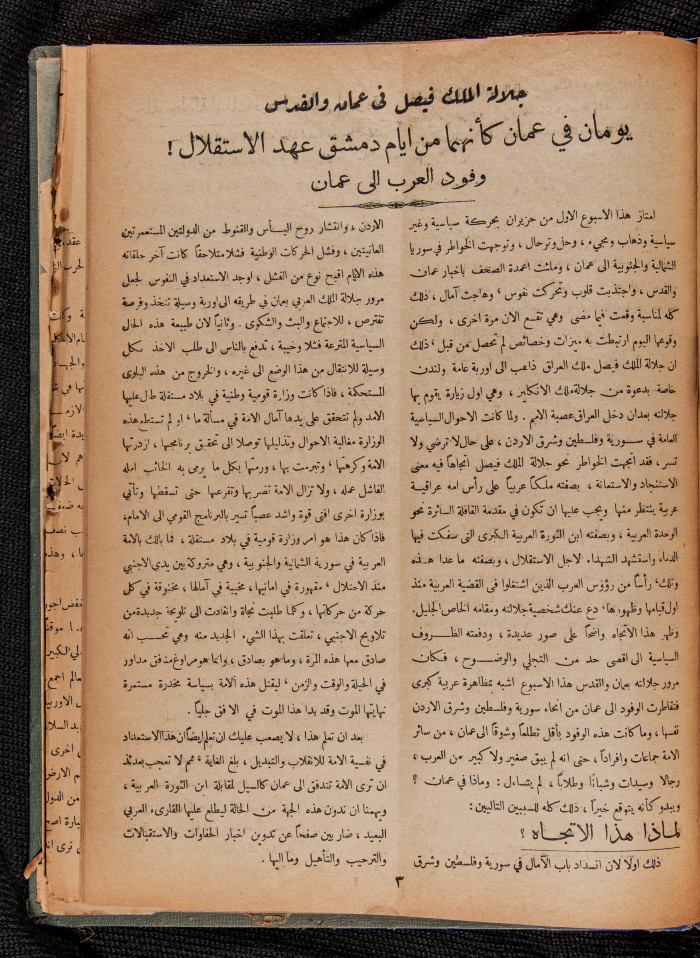 جلالة الملك فيصل في عمان والقدس
يومان في عمان كأنهما من ايام دمشق عهد الاستقلال !
وفود العرب الى عمان
امتاز هذا الاسبوع الاول من حزيران بحركة سياسية وغير
سياسية وذهاب ومجيء ، وحل وترحال ، وتوجهت الخواطر في سوريا
الشمالية والجنوبية الى عمان ، وملئت اعمدة الصحف باخبار عمان
والقدس ، واجتذبت قلوب وتحركت نفوس ، وهاجت آمال ، ذلك
كله لمناسبة وقعت فيما مضى وهي تقع الان مرة اخرى ، ولكن
وقوعها اليوم ارتبطت به ميزات وخصائص لم تحصل من قبل ، ذلك
ان جلالة الملك فيصل ملك العراق ذاهب الى اوربة عامة ولندن
خاصة بدعوة من جلالة ملك الانكليز ، وهي اول زيارة يقوم بها
جلالته بعدان دخل العراق عصبة الامم . ولما كانت الاحوال السياسية
العامة في سورية وفلسطين وشرق الاردن ، على حال لا ترضي ولا
تسر ، فقد اتجهت الخواطر نحو جلالة الملك فيصل اتجاها فيه معنى
الاستنجاد والاستعانة ، بصفته ملكاً عربياً على رأس امة عراقية
عربية ينتظر منها ويجب عليها ان تكون في مقدمة القافلة السائرة نحو
الوحدة العربية ، وبصفته ابن الثورة العربية الكبرى التي سفكت فيها
الدماء واستشهد الشهداء لاجل الاستقلال ، وبصفته ما عدا هذه
وتلك ، رأساً من رؤوس العرب الذين اشتغلوا في القضية العربية منذ
اول قيامها وظهورها ، دع عنك شخصية جلالته ومقامه الخاص الجليل.
وظهر هذا الاتجاه واضحاً على صور عديدة ، ودفعته الظروف
السياسية الى اقصى حد من التجلي والوضوح ، فكان
مرور جلالته بعمان والقدس هذا الاسبوع اشبه بتظاهرة عربية كبرى
فتقاطرت الوفود الى عمان من انحاء سورية وفلسطين وشرق الاردن
نفسها ، وما كانت هذه الوفود بأقل تطلعاً وشوقاً الى عمان ، من سائر
الامة جماعات وافراداً ، حتى انه لم يبق صغير ولا كبير من العرب ،
رجالا وسيدات وشباناً وطلاباً ، لم يتساءل : وماذا في عمان ؟
ويبدو كأنه يتوقع خيراً ، ذلك كله للسببين التاليين :
لماذا هذا الاتجاه ؟
ذلك اولا لان انسداد باب الآمال في سورية وفلسطين وشرق
الاردن ، وانتشار روح اليأس والقنوط من الدولتين المستعمرتين
العاتيتين ، وفشل الحركات الوطنية فشلا متلاحقا كانت آخر حلقاته
هذه الايام اقبح نوع من الفشل ، اوجد الاستعداد في النفوس لجعل
مرور جلالة الملك العربي بعمان في طريقه الى اوربة وسيلة تتخذ وفرصة
تفترص ، للاجتماع والبث والشكوى . وثانياً لان طبيعة هذه الحال
السياسية المترعة فشلا وخيبة ، تدفع بالناس الى طلب الاخذ بكل
وسيلة للانتقال من هذا الوضع الى غيره ، والخروج من هذه البلوى
المستحكمة ، فاذا كانت وزارة قومية وطنية في بلاد مستقلة طال عليها
الامد ولم تتحقق على يدها آمال الامة في مسألة ما ، او لم تستطع هذه
الوزارة مغالبة الاحوال وتذليلها توصلا الى تحقيق برنامجها ، ازدرتها
الامة وكرهتها ، وتبرمت بها ، ورمتها بكل ما يرمى به الخائب امله
الفاشل عمله ، ولا تزال الامة تضربها وتقرعها حتى تسقطها وتأتي
بوزارة اخرى افتى قوة واشد عصباً تسير بالبرنامج القومي الى الامام،
فاذا كان هذا هو امر وزارة قومية في بلاد مستقلة ، فما بالك بالامة
العربية في سورية الشمالية والجنوبية ، وهي متروكة بين يدي الاجنبي
منذ الاحتلال ، مقهورة في امانيها ، مخيبة في آمالها ، مخنوقة في كل
حركة من حركاتها ، وكلما طلبت نجاة وانقادت الى تلويحة جديدة من
تلاويح الاجنبي ، تعلقت بهذا الشيء الجديد منه وهي تحسب انه
صادق معها هذه المرة ، وما هو بصادق ، وانما هو مراوغ منفق مداور
في الحيلة والوقت والزمن ، ليقتل هذه الامة بسياسة مخدرة مستمرة
نهايتها الموت وقد بدا هذا الموت في الافق جلياً .
بعد ان تعلم هذا ، لا يصعب عليك ان تعلم ايضاً ان هذا الاستعداد
في نفسية الامة للانقلاب والتبديل ، بلغ الغاية ، فلم لا تعجب بعدئذ
ان ترى الامة تتدفق الى عمان كالسيل لمقابلة ابن الثورة العربية ،
ويهمنا ان ندون هذه الجهة من الحالة ليطلع عليها القارىء العربي
البعيد ، ضاربين صفحاً عن تدوين اخبار الحفاوات والاستقبالات
والترحيب والتأهيل وما اليها .
٣